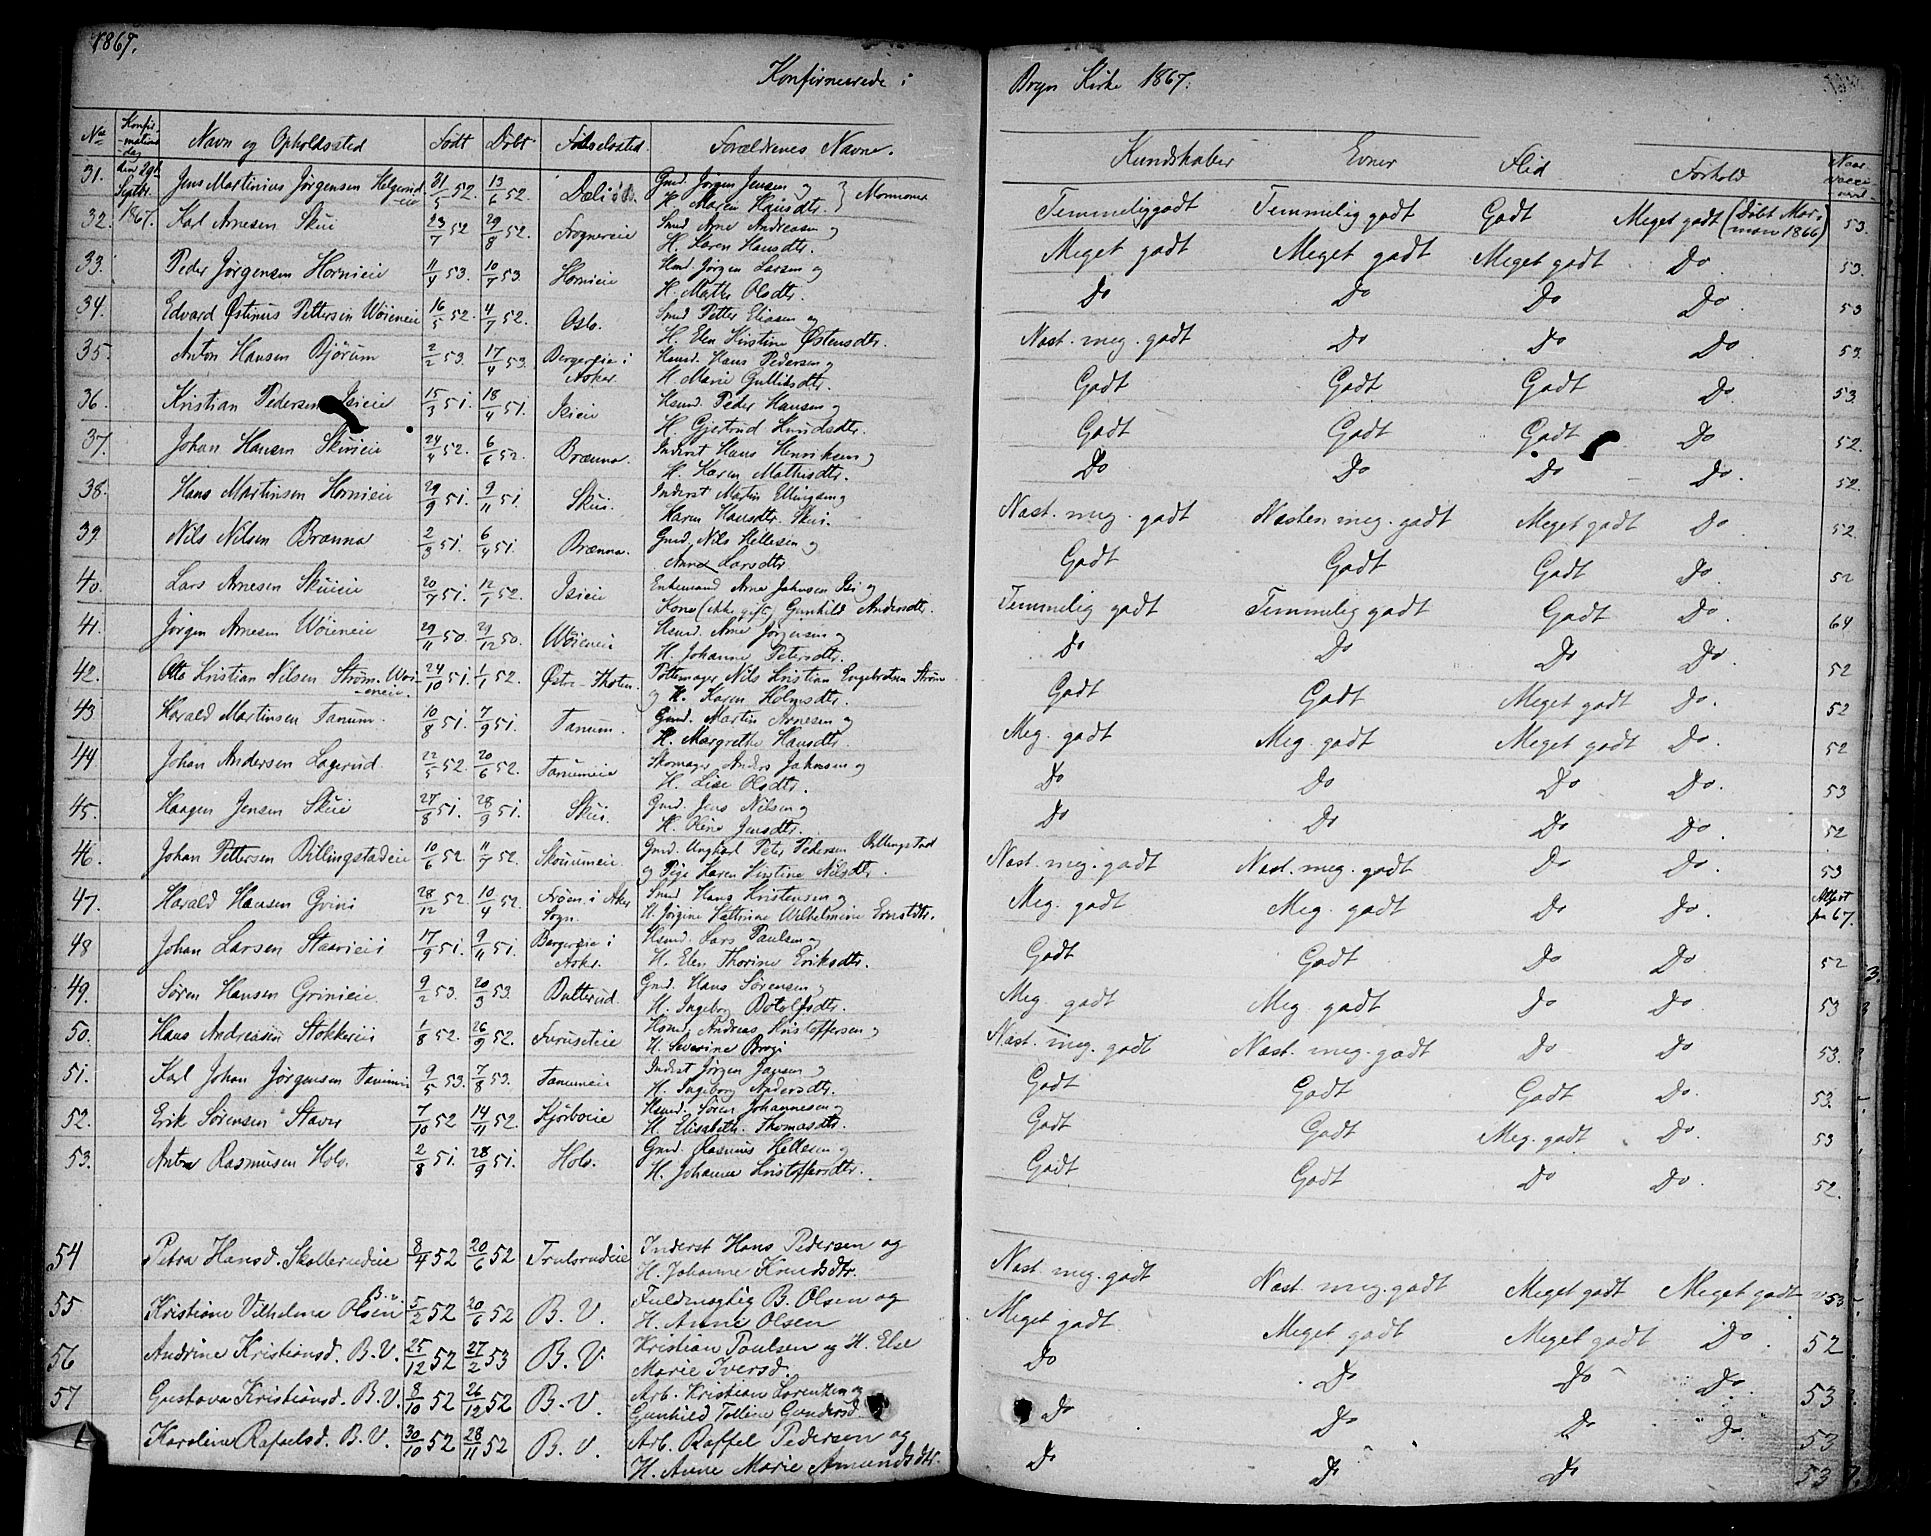 1867.
Konfirmerede i
Bryn Kirke 1867.
No Konfirmationsdag Navn og Opholdssted Født Døbt Fødselssted. Forældrenes Navne.
Kundskaber Evner Flid Forhold Naar vaccinered.
31. den 29de Septbr. 1867. Jens Martinius Jørgensen Helgerudeie 31/5 52. 13/6 52. Gmd. Jørgen Jensen og H. Maren Hansdtr. } Mormoner Temmelig godt Temmelig godt Godt Meget godt (Døbt Mormon 1866) 53.
32. Karl Arnesen Skui 23/7 52 29/8 52. Frognereie Smed Arne Andreasen og H. Karen Hansdtr. Meget godt Meget godt Meget godt Do 53.
33. Peder Jørgensen Hornieie 11/4 53. 10/7 53. Hornieie Hmd. Jørgen Larsen og H. Mathe Olsdtr. Do Do Do Do. 53
34. Edvard Østinus Pettersen Wøieneie 16/5 52. 4/7 52. Oslo. Smed Petter Eliasen og H. Elen Kirstine Østensdtr. Næst. meg. godt Do Do Do. 53.
35. Anton Hansen Bjørum 2/2 53. 17/4 53. Bergereie i Asker. Husmd. Hans Pedersen og H. Marie Gulliksdtr. Godt Godt Godt Do. 53.
36. Kristian Pedersen Isieie 15/3 51. 18/4 51. Isieie Husmd. Peder Hansen og H. Gjertrud Knudsdtr. Godt Godt Godt Do 52.
37. Johan Hansen Skuieie 24/4 52. 6/6 52. Brænna. Inderst Hans Henriksen og H. Karen Mathisdtr. Do Do Do Do. 52.
38. Hans Martinsen Hornieie 29/9 51. 9/11 51. Skui. Inderst Martin Ellingsen og Karen Hansdtr. Skui. Næst. meg. godt Næsten meg. godt Meget godt Do 52
39 Nils Nilsen Brænna 2/3 51. 6/4 51. Brænna. Gmd. Nils Hellesen og Anne Larsdtr Godt Godt Godt Do. 52
40. Lars Arnesen Skuieie 20/7 51. 12/1 52. Isieie Enkemand Arne Johnsen Isi og Kone (ikke gift) Gunhild Andersdtr. Temmelig godt Temmelig godt Godt Do. 64
41. Jørgen Arnesen Wøieneie 29/11 50. 29/12 50. Wøieneie Husmd. Arne Jørgensen og H. Johanne Petersdtr. Do Do Do Do. 52
42. Otto Kristian Nilsen Strøm. Wøieneie. 24/10 51. 1/1 52. Østre-Thoten Pottemager Nils Kristian Engebretsen Strøm og H. Karen Holmsdtr. Godt Godt Meget godt Do. 52
43 Harald Martinsen Tanum. 10/8 51. 7/9 51. Tanum. Gmd. Martin Arnesen og H. Margrethe Hansdtr. Meg. godt Meg. godt Meget godt Do. 52
44 Johan Andersen Lagerud. 22/5 52. 20/6 52. Tanumeie Skomager Anders Johnsen og H. Lise Olsdtr. Do Do Do Do. 53
45. Haagen Jensen Skui 27/8 51. 28/9 51. Skui. Gmd. Jens Nilsen og H. Oline Jensdtr. Do Do Do Do. 52
46. Johan Pettersen Billingstadeie 10/6 52. 11/7 52. Skouumeie. Gmd. Ungkarl Peter Pedersen Billingstad og Pige Karen Kirstine Nilsdtr. Næst. meg. godt Næst. meg. godt Do Do. 53
47. Harald Hansen Grini 28/12 52. 10/4 52. Frøen i Aker Sogn. Smed Hans Kristensen og H. Jørgine Kathrine Wilhelmine Ernstdtr. Meg. godt Meg. godt Do Do. Attest fra 67.
48 Johan Larsen 17/9 51. 9/11 51. Bergereie i Asker. Husmd. Lars Paulsen og H. Elen Thorine Eriksdtr. Godt Godt Do Do. 52
49. Søren Hansen Grinieie. 9/2 53. 20/3 53. Butterud. Gmd. Hans Sørensen og H. Ingeborg Botolfsdtr. Meg. godt Meg godt Do Do. 53
50. Hans Andreasen Stokkereie 1/8 52. 26/9 52. Furuseteie Husmd. Andreas Kristoffersen og H. Severine Brogi Næst. meg. godt Næst. meg. godt Do Do 53.
51. Karl Johan Jørgensen Tanumeie 9/5 53. 7/8 53. Tanumeie Inderst Jørgen Jansen og H. Ingeborg Andersdtr. Godt Godt Godt Do. 53.
52. Erik Sørensen Staver 7/10 52 14/11 52. Kjørboeie Husmd. Søren Johannesen og H. Elisabeth Thomasdtr. Godt Godt Meg. godt Do. 53
53. Anton Rasmusen Holo. 2/8 51. 28/9 51. Holo. Gmd. Rasmus Hellesen og H. Johanne Kristoffersdtr. Godt Godt Do Do. 52.
54 Petra Hansd. Skollerudeie 8/4 52 20/6 52 Trulsrudeie Inderst Hans Pedersen og H. Johanne Knudsdtr. Næst. meg. godt Næst. meg. godt Meget godt Meget godt 53
55 Kristiane Vilhelmine Olsen B.V. 5/2 52 20/6 52 B. V. Fuldmægtig B. Olsen og H. Anne Olsen Meget godt Meget godt Meget godt Do. 52
56 Andrine Kristiansd. B.V. 25/12 52 27/2 53 B. V. Kristian Poulsen og H. Else Marie Iversd. Do Do Do Do. 53
57 Gustava Kristiansd. B.V. 8/10 52 26/12 52 B. V. Arb. Kristian Lorentzen og Gunhild Tolline Gundersd. Do Do Do Do. 53
Karoline Rafaelsd. B.V. 30/10 52 28/11 52 B. V. Arb. Raffel Pedersen og H. Anne Marie Amundsdtr. Do Do Do 53